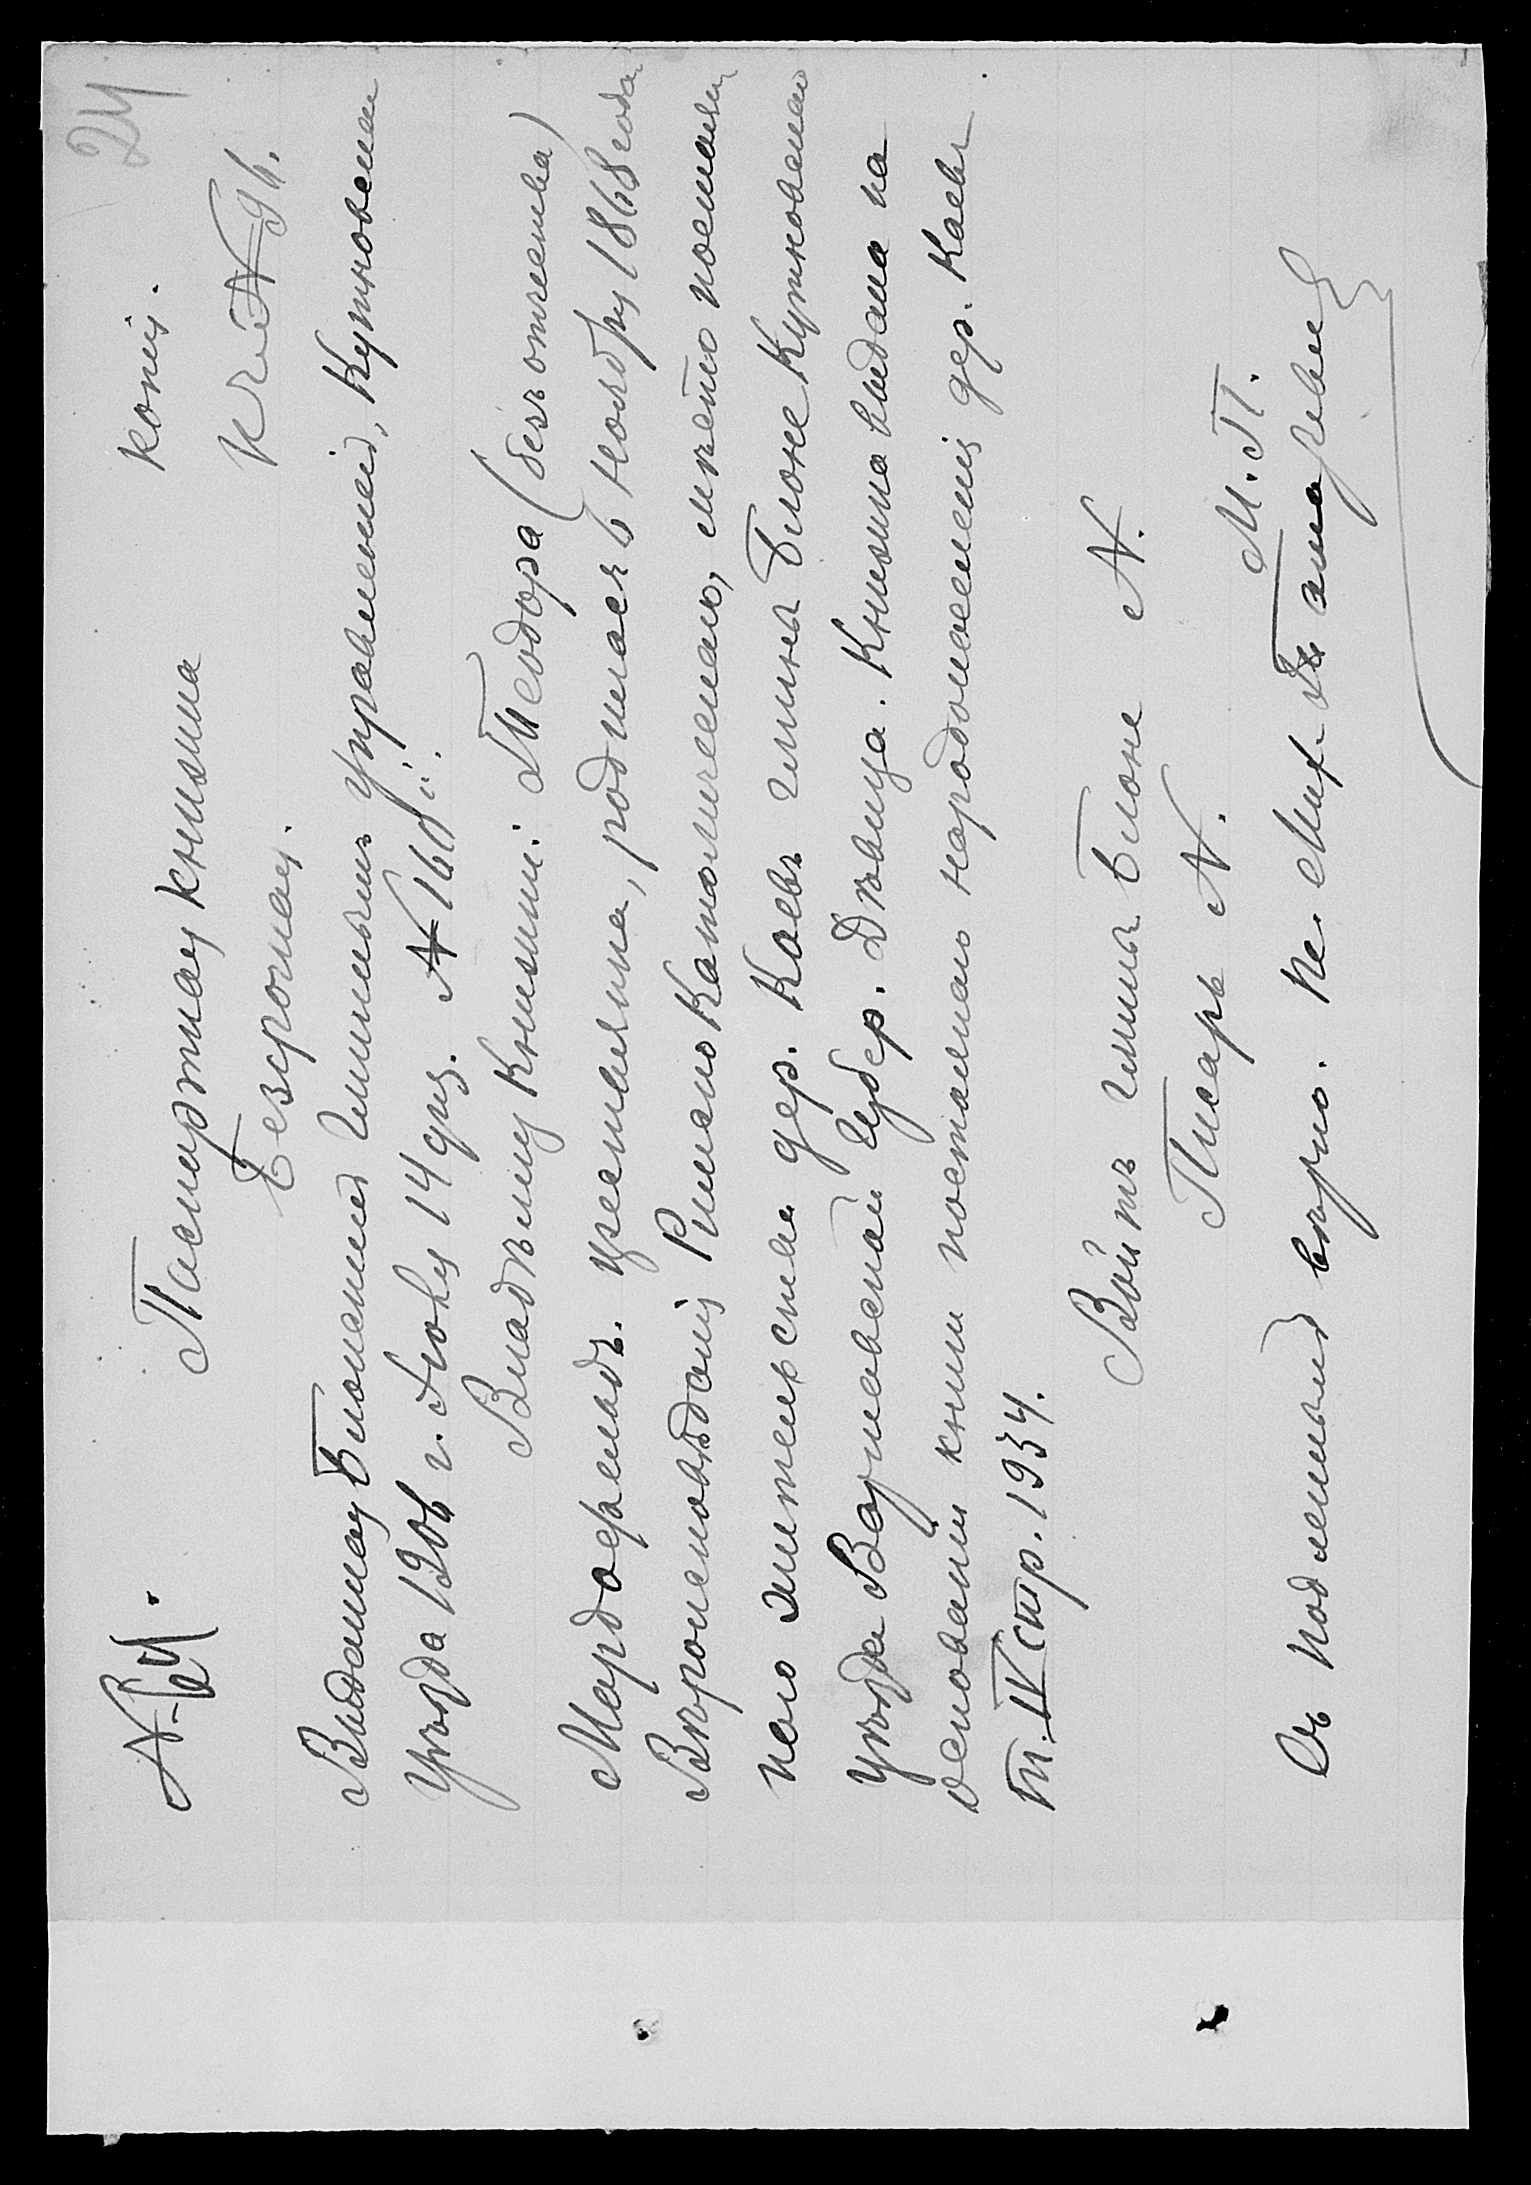 24
N. 64. Копія.
Паспортная книжка К N 96.
Безсрочная.
Выданная Блонскимъ гминнымъ управленіемъ, Кутновскаго
уѣзда 1906 г. 14 дня. N 160.
Владѣлецъ книжки: Теодора (безъ отчества)
родилась 6 Ноября 1868 года
Вѣроисповѣданія Римско Католическаго, мѣсто постоян
наго жительства дер. Каевъ гмина Блоне Кутновскаго
уѣзда Варшавской Губер. Дѣвица. Книжка выдана на
основаніи книги постояннаго народонаселенія дер. Каевъ
Т. IV стр. 1934.
Войтъ гмины Блоне N.
Писарь N.
М. П.
Съ подлиннымъ вѣрно.